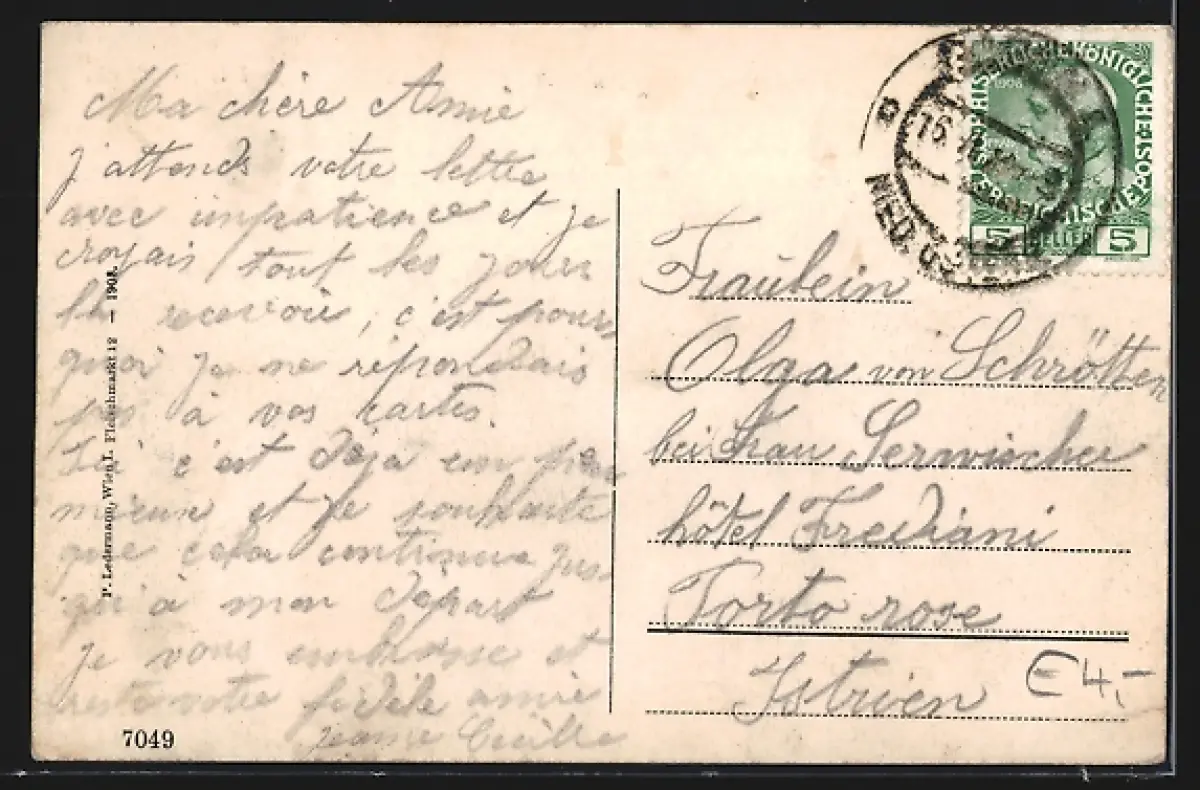 Ma chère Amie
j'attends votre lettre
avec impatience et je
croyais tout les jours
la recevoir, c'est pour-
quoi je ne répondais
pas à vos cartes.
Ici c'est déja un peu
mieux et je souhaite
que cela continue jus-
qu'à mon départ
je vous embrasse et
reste votre fidèle amie
Jeanne Cécile
P. Ledermann, Wien I. Fleischmarkt 12 – 1908.
7049
KAISERLICHE KÖNIGLICHE
ÖSTERREICHISCHE
1908
5 HELLER 5
Fräulein
Olga von Schrötter
bei Frau
hôtel Frediani
Porto rose
Istrien
E4,-